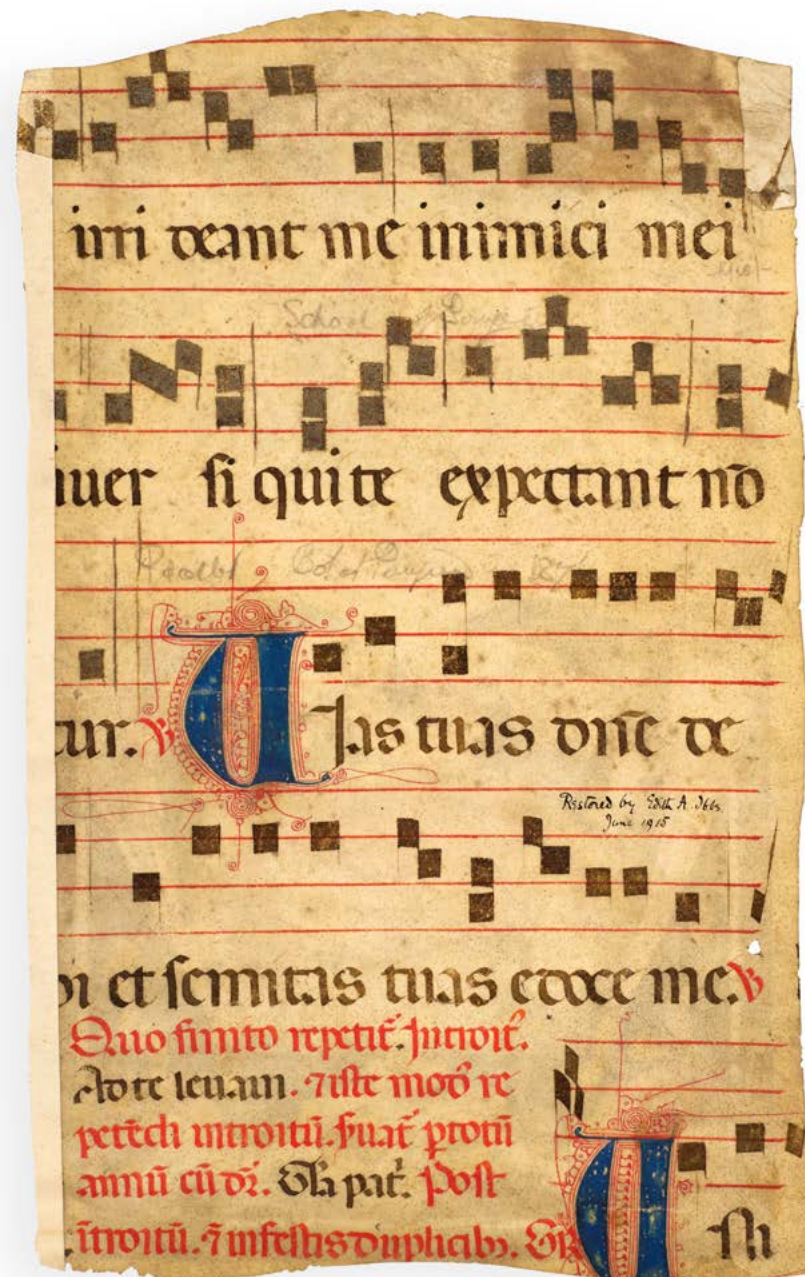 irri deant me inimici mei
School of
iuer si qui te expectant nō
tur. ℣ Uias tuas dn̄e de
Restored by Edith A. Ibbs.
June 1915
et semitas tuas edoce me. ℣
Quo finito repetit̄. Introit̄.
Ad te leuaui. ⁊ iste mod᷒ re
petēdi introitū. ẜuat̄ ꝑ totū
annū cū dr̄. Gl̄a pat̄. Post
ītroitū. ⁊ in festis duplicibꝫ. U ni